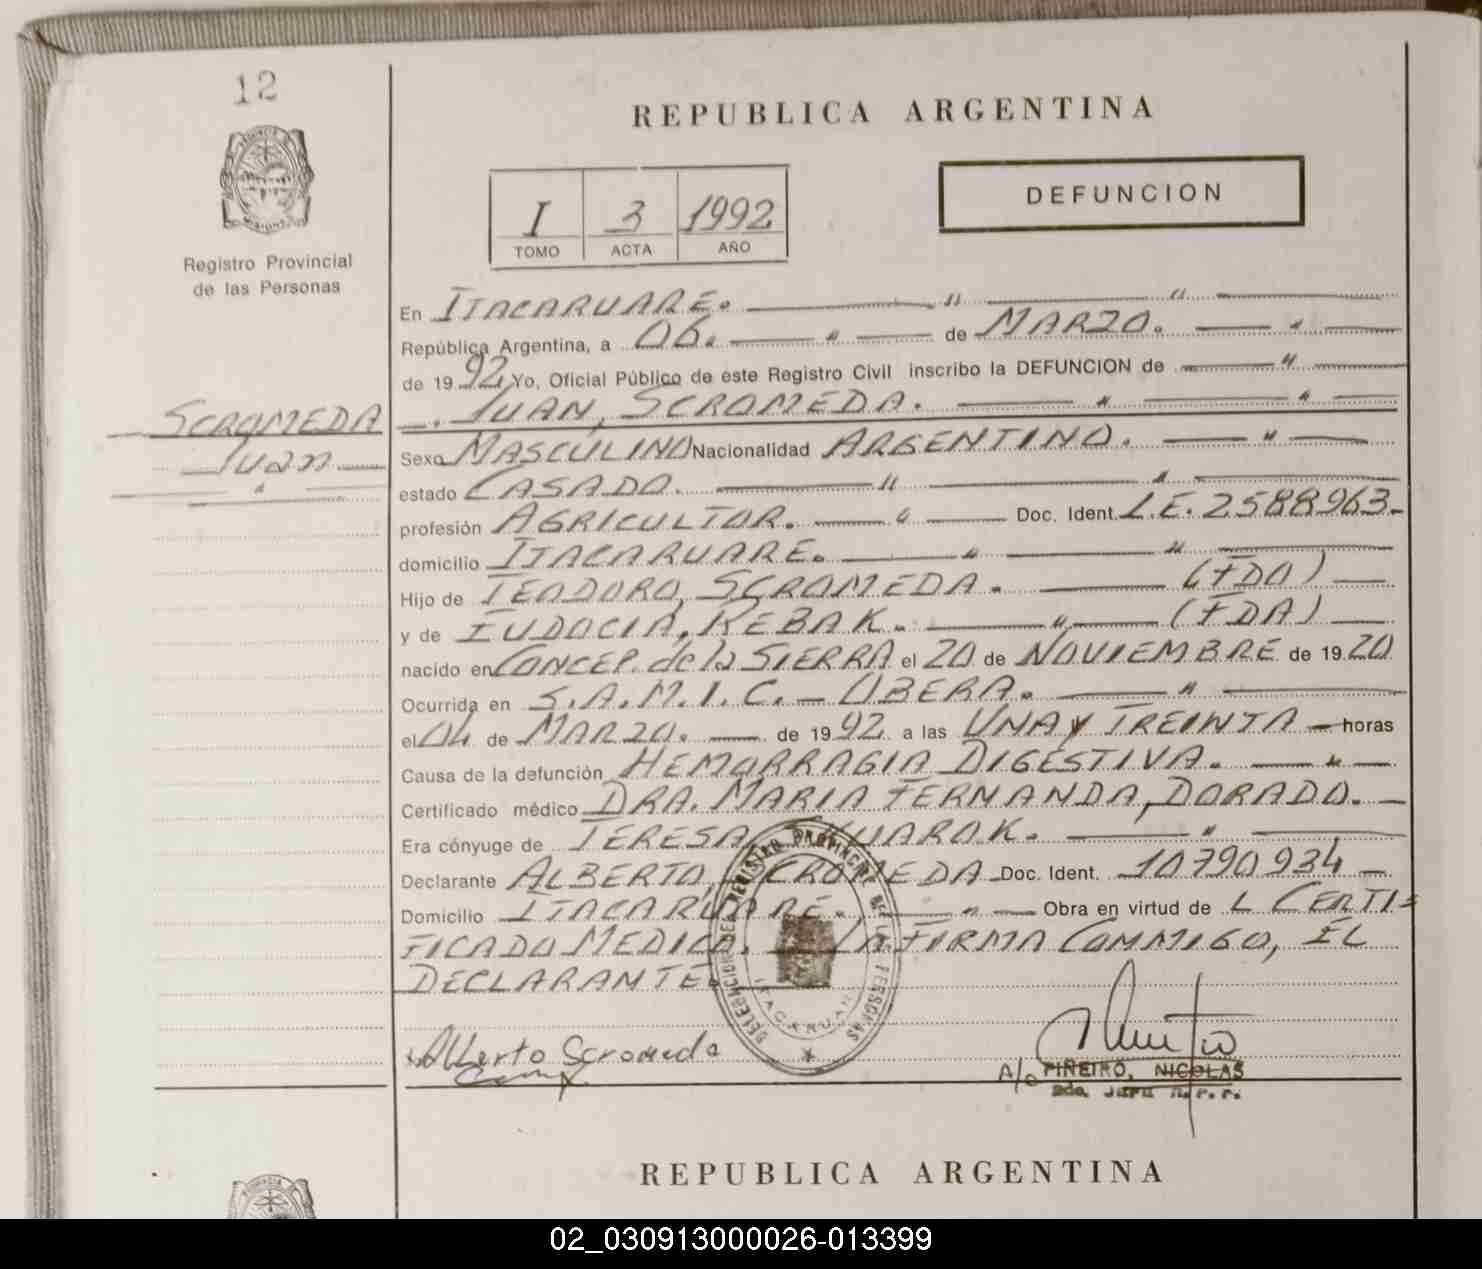 12
REPUBLICA ARGENTINA
DEFUNCION
I 3 1992
TOMO ACTA AÑO
Registro Provincial
de las Personas
En ITACARUARE.
República Argentina, a 06. de MARZO.
de 1992 Yo, Oficial Público de este Registro Civil inscribo la DEFUNCION de
SCROMEDA
Juan
JUAN, SCROMEDA.
Sexo MASCULINO Nacionalidad ARGENTINO.
estado CASADO.
profesión AGRICULTOR. Doc. Ident. L.E. 2588963.
domicilio ITACARUARE.
Hijo de TEODORO, SCROMEDA. (FDO)
y de EUDOCIA, REBAK. (FDA)
nacido en CONCEP. de la SIERRA el 20 de NOVIEMBRE de 1920
Ocurrida en S.A.M.I.C. - OBERA.
el 04 de MARZO. de 1992 a las UNA y TREINTA horas
Causa de la defunción HEMORRAGIA DIGESTIVA.
Certificado médico DRA. MARIA FERNANDA, DORADO.
Era cónyuge de TERESA,
Declarante ALBERTO, SCROMEDA Doc. Ident. 10790934
Domicilio ITACARUARE. Obra en virtud de L CERTI-
FICADO MEDICO. LA FIRMA COMMIGO, EL
DECLARANTE
DELEGACION DEL REGISTRO PROVINCIAL DE LAS PERSONAS
Alberto Scromeda
A/c PIÑEIRO, NICOLAS
REPUBLICA ARGENTINA
02_030913000026-013399